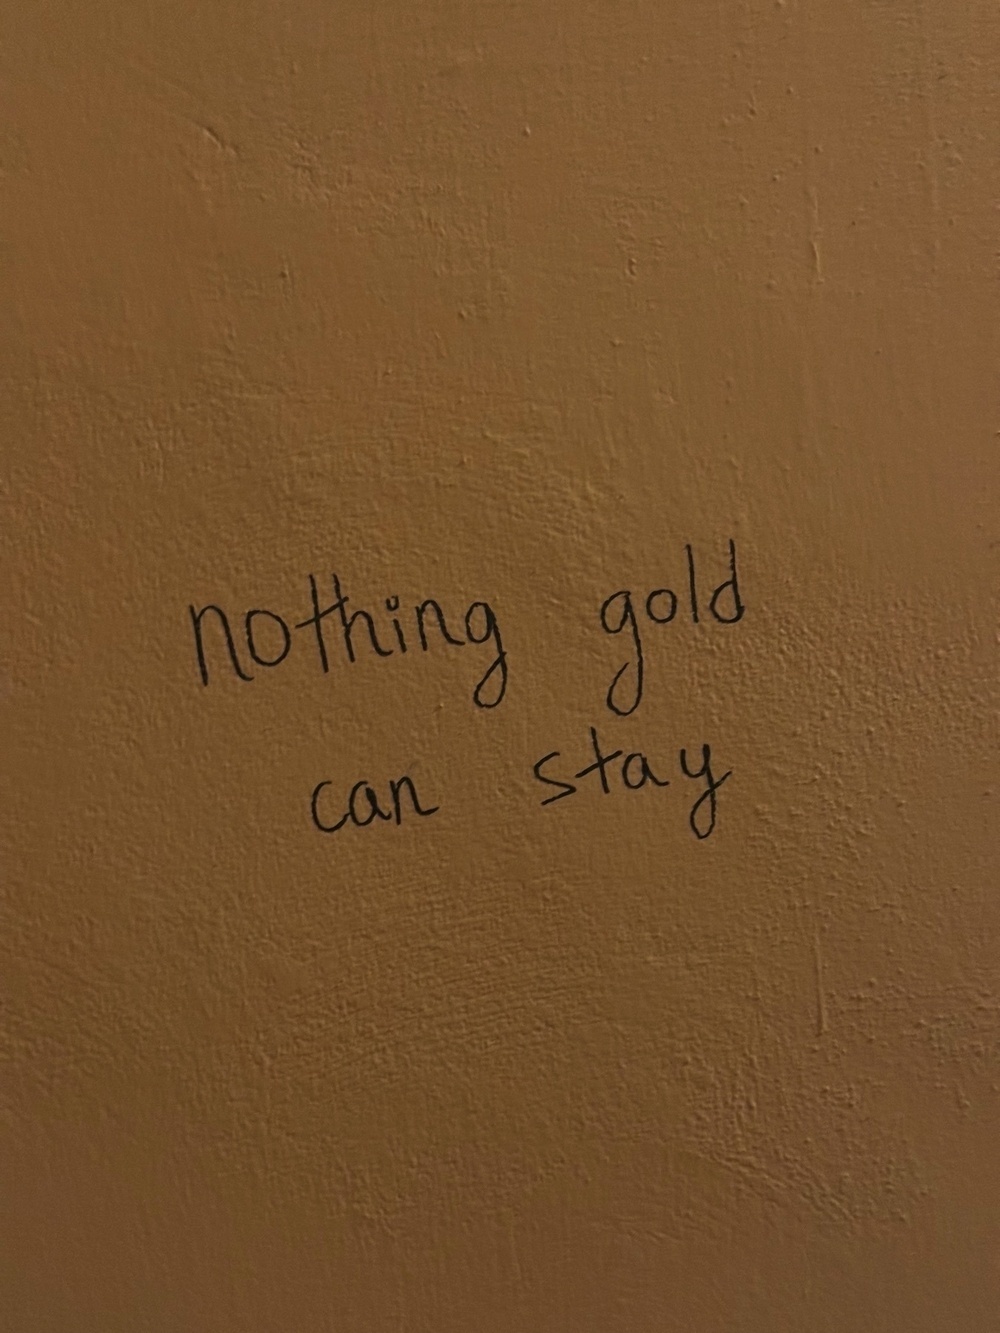 nothing gold
can stay